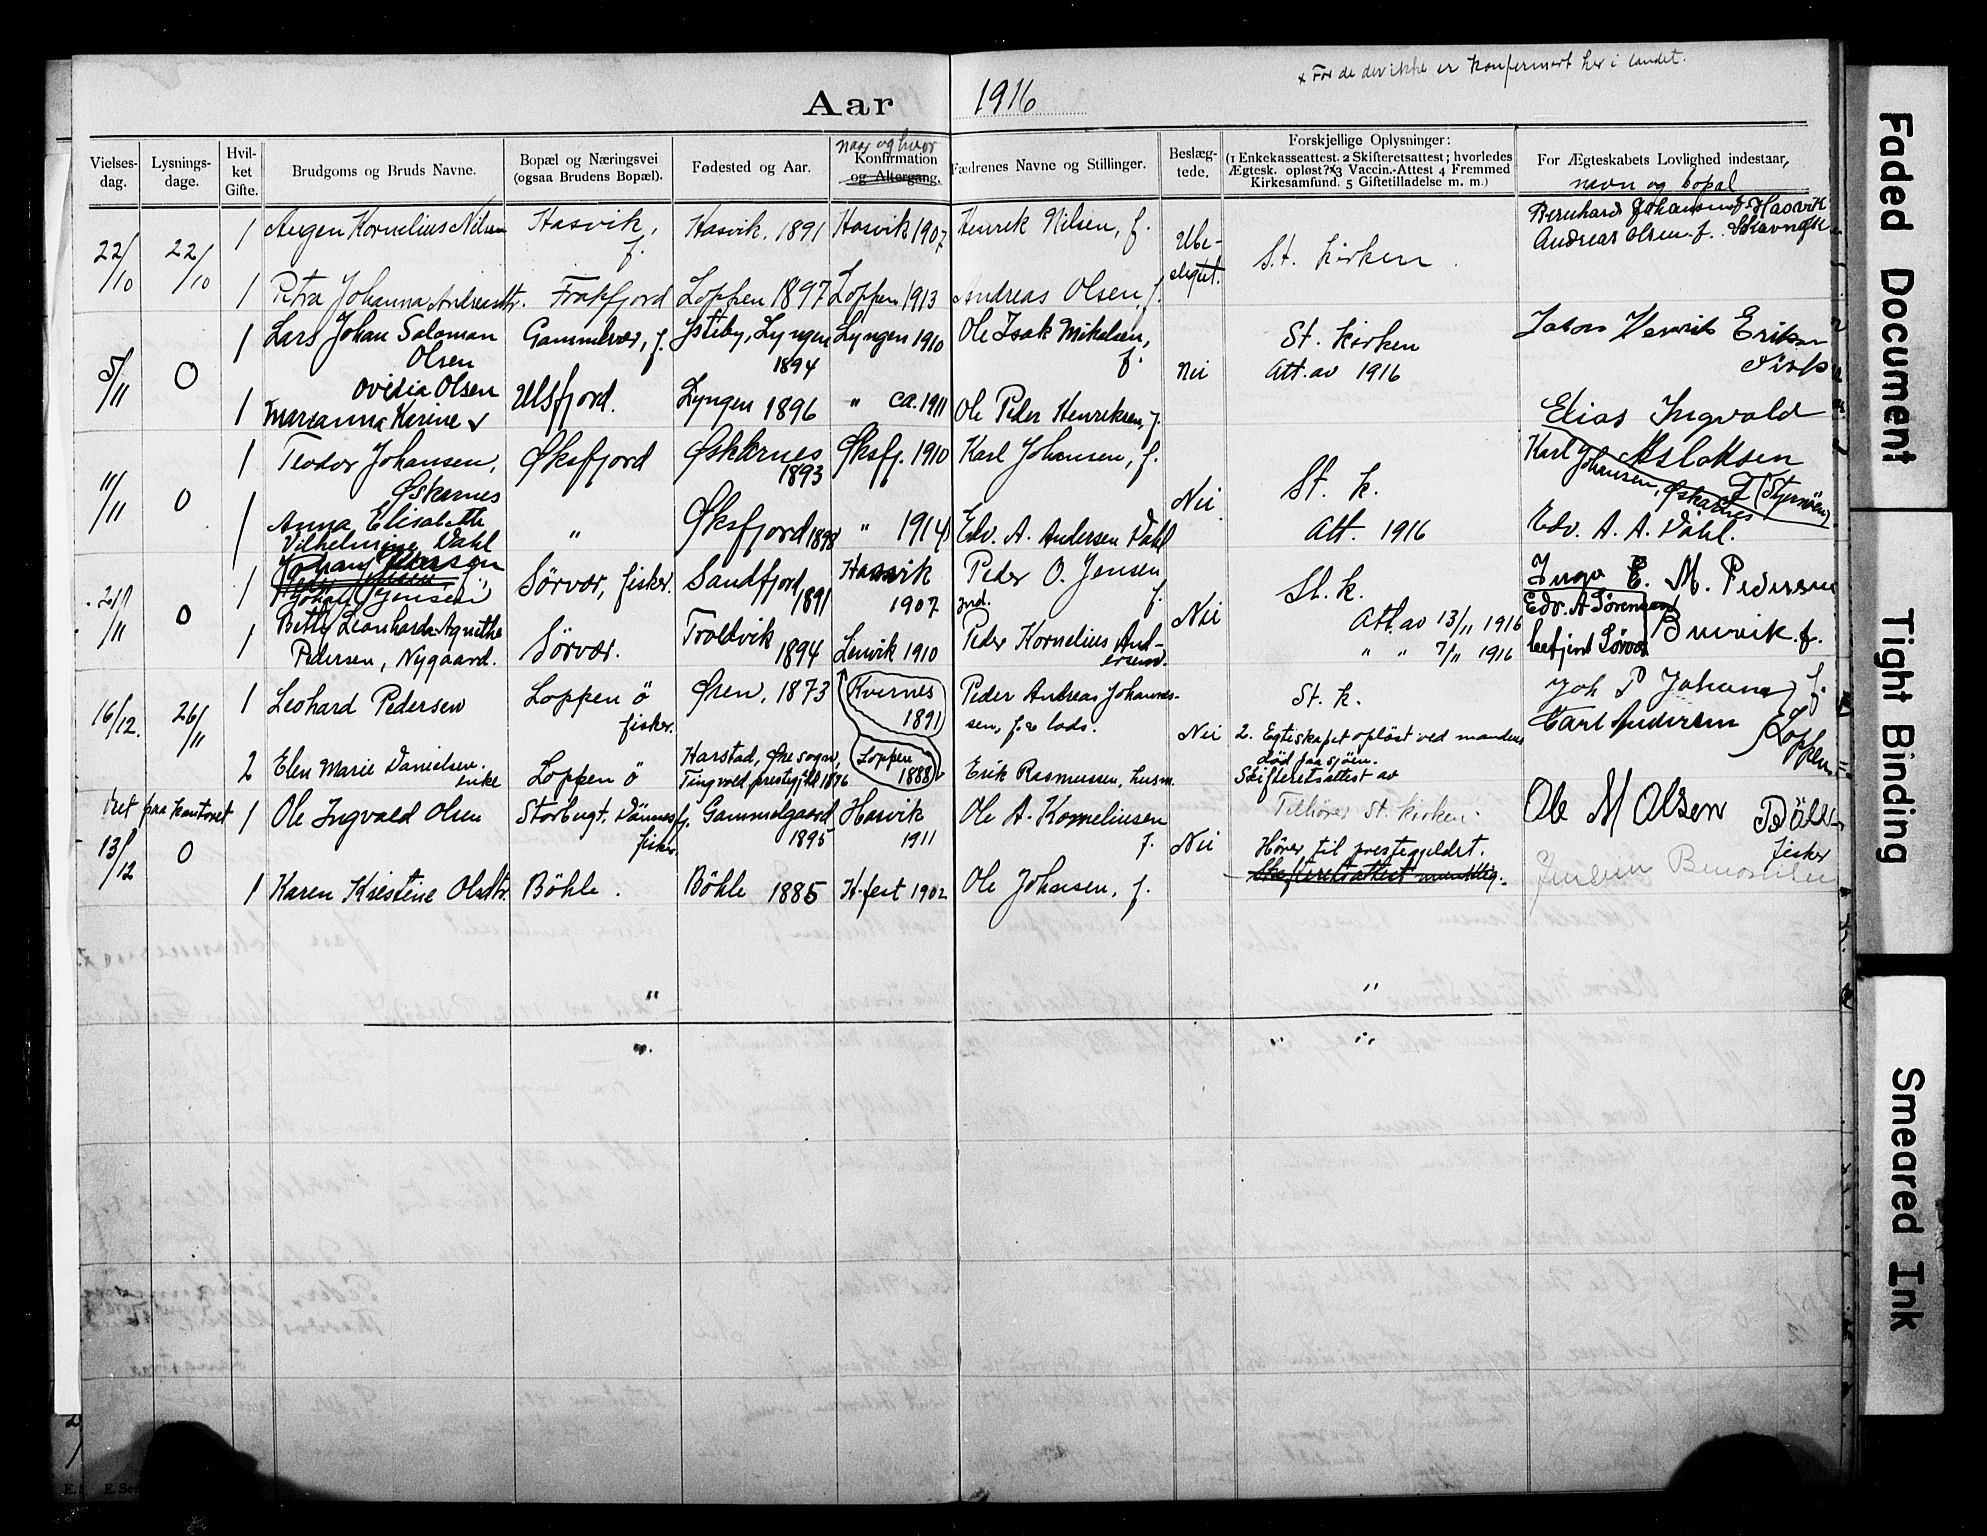 x For de der ikke er konfermert her i landet.
Aar 1916
Vielses-dag.
Lysnings-dage.
Hvil-ket Gifte.
Brudgoms og Bruds Navne.
Bopæl og Næringsvei
(ogsaa Brudens Bopæl).
Fødested og Aar.
naar og hvor
Konfirmation
og Altergang.
Fædrenes Navne og Stillinger.
Beslæg-tede.
Forskjellige Oplysninger:
(1 Enkekasseattest. 2 Skifteretsattest; hvorledes
Ægtesk. opløst? x 3 Vaccin.-Attest 4 Fremmed
Kirkesamfund. 5 Giftetilladelse m. m.)
For Ægteskabets Lovlighed indestaar,
navn og bopæl
22/10 22/10 1 Augen Kornelius Nilsen Hasvik, f. Hasvik, 1891 Hasvik 1907 Henrik Nilsen, f. Ube-slegtet. St. kirken.
Bernhard Johansen f. Hasvik
Andreas Olsen f.
1 Petra Johanna Andreasdtr. Frakfjord Loppen 1897 Loppen 1913 Andreas Olsen, f.
5/11 0 1 Lars Johan Saloman Olsen Gammelvær, f. Lyngen 1894 Lyngen 1910 Ole Isak Mikalsen, f. Nei St. kirken
Att. av 1916
Henrik
1 Marianna Kerine v Ovidia Olsen Ulsfjord. Lyngen 1896 " ca. 1911 Ole Peder Henriksen, f.
Elias Ingvald
Aslaksen
11/11 0 1 Teodor Johansen, Øskernes Øksfjord Øskernes 1893 Øksfj. 1910 Karl Johansen, f. Nei St. k.
Att. 1916
Karl Johansen, Øskarnes
1 Anna Elisabeth Vilhelmine Dahl " Øksfjord 1898 " 1914 Edv. A. Andersen Dahl
Edv. A. A. Dahl.
21/11 0 1 Johan Jensen Sørvær, fisker. Sandfjord 1891 Hasvik 1907 Peder O. Jensen f. Nei St. k.
Att. av 13/11 1916
" " 7/11 1916
M. Pedersen
Edv. A Sørensen
1 Betty Leonharda Agnethe Pedersen, Nygaard. Sørvær. Trolvik 1894 Lenvik 1910 Peder Kornelius And-ersen.
16/12. 26/11 1 Leohard Pedersen Loppen ö fisker. Øren, 1873 Kvernes 1891 Peder Andreas Johannes-sen, f. & lods. Nei St. k.
2. Egteskapet opløst ved mandens
død paa sjøen.
Skifteretsattest av
Joh P Johans
Carl Andersen
Loppen
2 Elen Marie Danielsen. enke Loppen ö Harstad, Øre sogn, Tingvold prestegjeld 1876 Loppen 1888 Erik Rasmussen, husm.
Viet paa kontoret
13/12 0 1 Ole Ingvald Olsen Storbugt, fisker. Gammelgaard 1895 Hasvik 1911 Ole A. Korneliusen f. Nei Tilhører St. kirken.
Hører til prestegjeldet.
Skifteretsattest mundtlig.
Ole M Olsen
fisker
1 Karen Kristine Olsdtr. Böhle. Böhle 1885 H.fest 1902 Ole Johnsen, f.
" "
" " "
Faded Document
Tight Binding
Smeared Ink